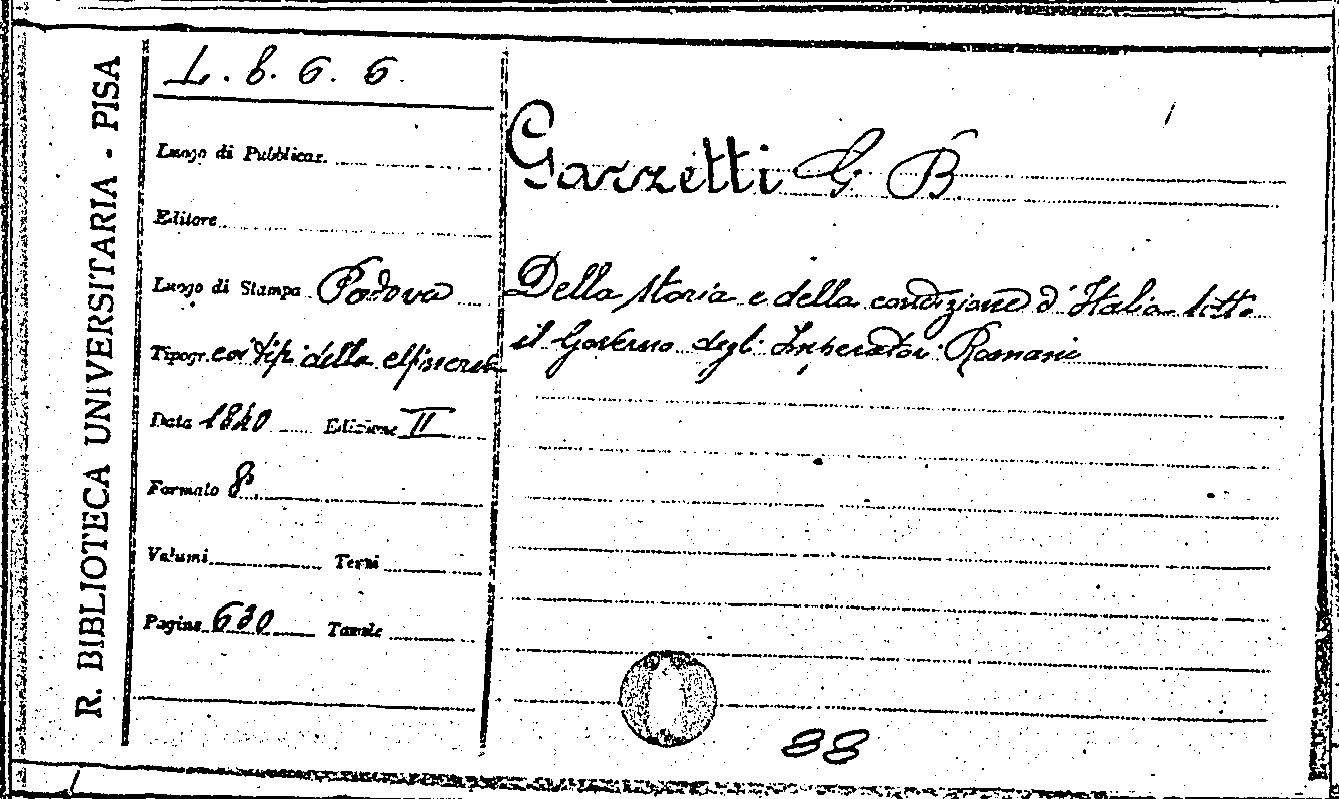 R. BIBLIOTECA UNIVERSITARIA - PISA
L. 8. 6. 6.
Luogo di Pubblicaz.
Editore
Luogo di Stampa Padova
Tipogr. coi tipi della Minerva
Data 1840 Edizione II
Formato 8°
Volumi Tomi
Pagine 630 Tavole
Garzetti G B
Della storia e della condizione d'Italia sotto
il Governo degli Imperatori Romani
88